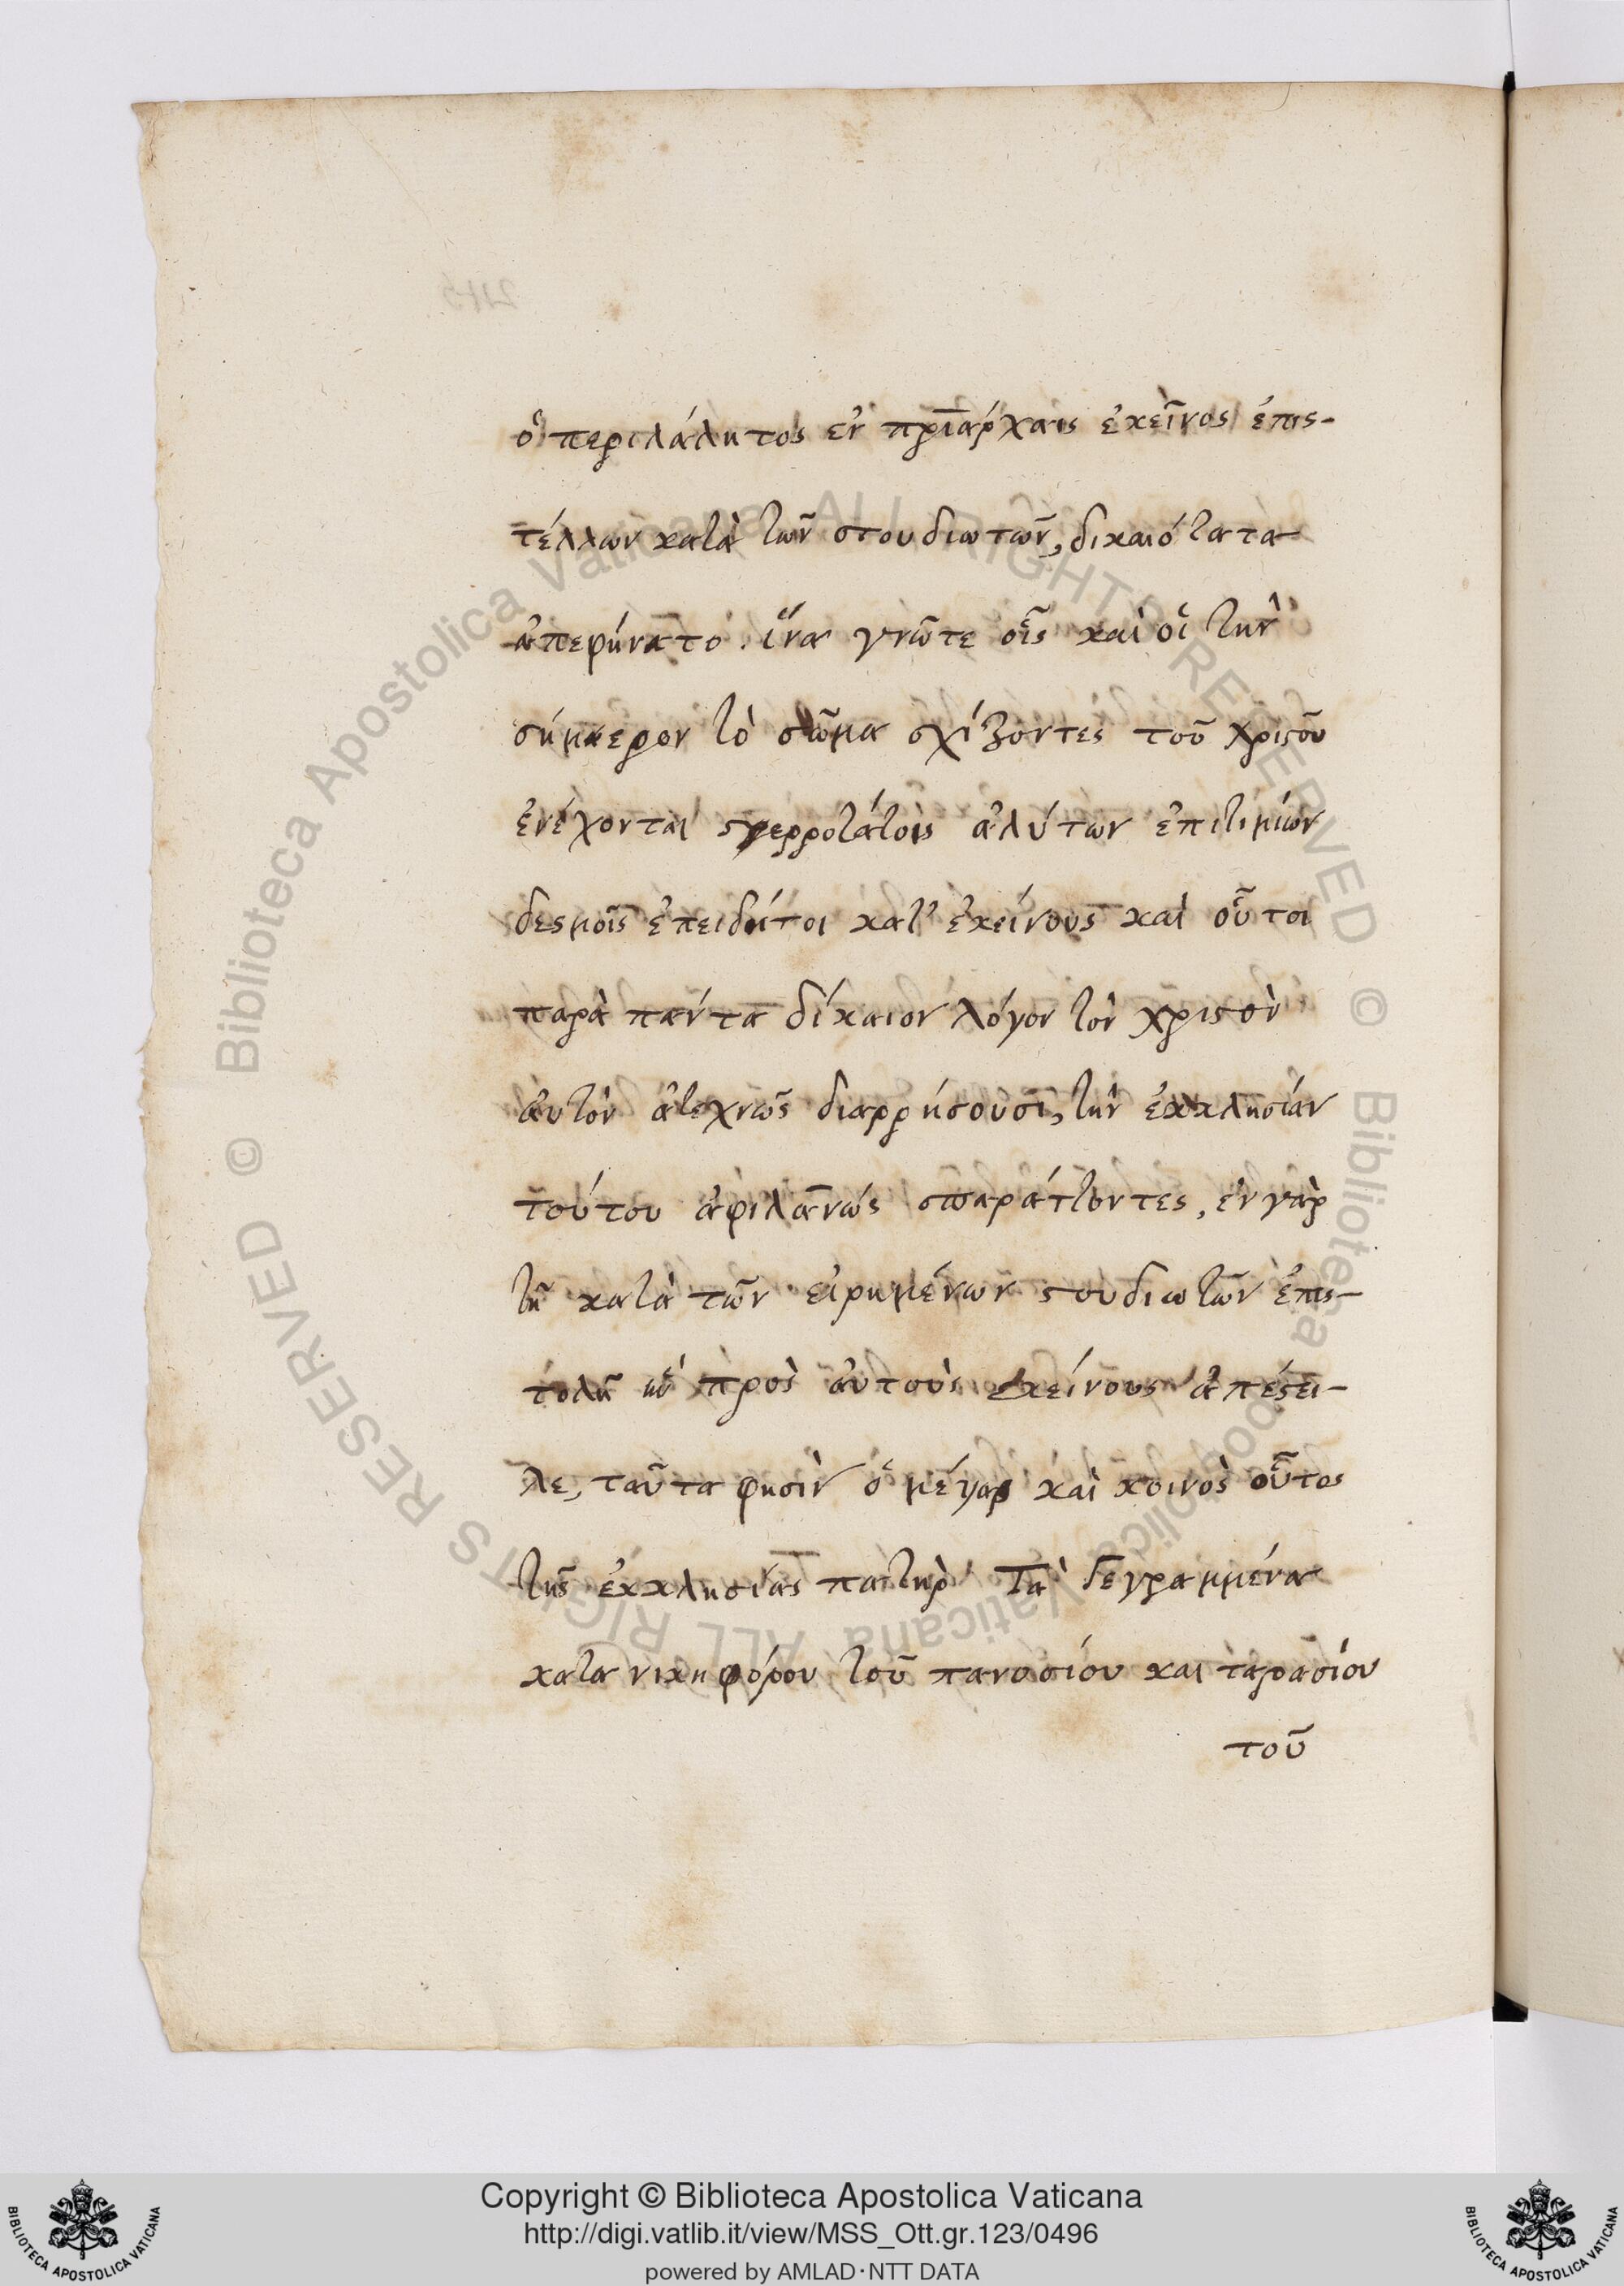 ὁ περιλάλητος ἐν πριάρχαις ἐκεῖνος ἐπισ-
τέλλων κατὰ τῶν στουδιωτῶν, δικαιότατα
ἀπεφήνατο. ἵνα γνῶτε οἷς καὶ οἱ τὴν
σήμερον τὸ σῶμα σχίζοντες τοῦ χριστοῦ
ἐνέχονται στερροτάτοις ἀλύτων ἐπιτιμίων
δεσμοῖς ἐπειδήτοι κατ' ἐκείνους καὶ οὗτοι
παρὰ πάντα δίκαιον λόγον τὸν χριστὸν
ἀυτὸν ἀτεχνῶς διαρρήσουσι, τὴν ἐκκλησίαν
τούτου ἀφιλανώς σπαράττοντες, ἐν γὰρ
τῆ κατὰ τῶν εἰρημένων στουδιωτῶν ἐπισ-
τολῆ ἣν πρὸς ἀυτοὺς ἐκείνους ἀπέστει-
λε, ταῦτα φησὶν ὁ μέγας καὶ κοινὸς οὗτος
τῆς ἐκκλησίας πατὴρ Τὰ Γεγραμμένα
κατα νικηφόρου τοῦ πανοσίου και ταρασίου
τοῦ
2115
Copyright © Biblioteca Apostolica Vaticana
http://digi.vatlib.it/view/MSS_Ott.gr.123/0496
powered by AMLAD·NTT DATA
BIBLIOTECA APOSTOLICA VATICANA
BIBLIOTECA APOSTOLICA VATICANA
© Biblioteca Apostolica Vaticana ALL RIGHTS RESERVED © Biblioteca Apostolica Vaticana ALL RIGHTS RESERVED